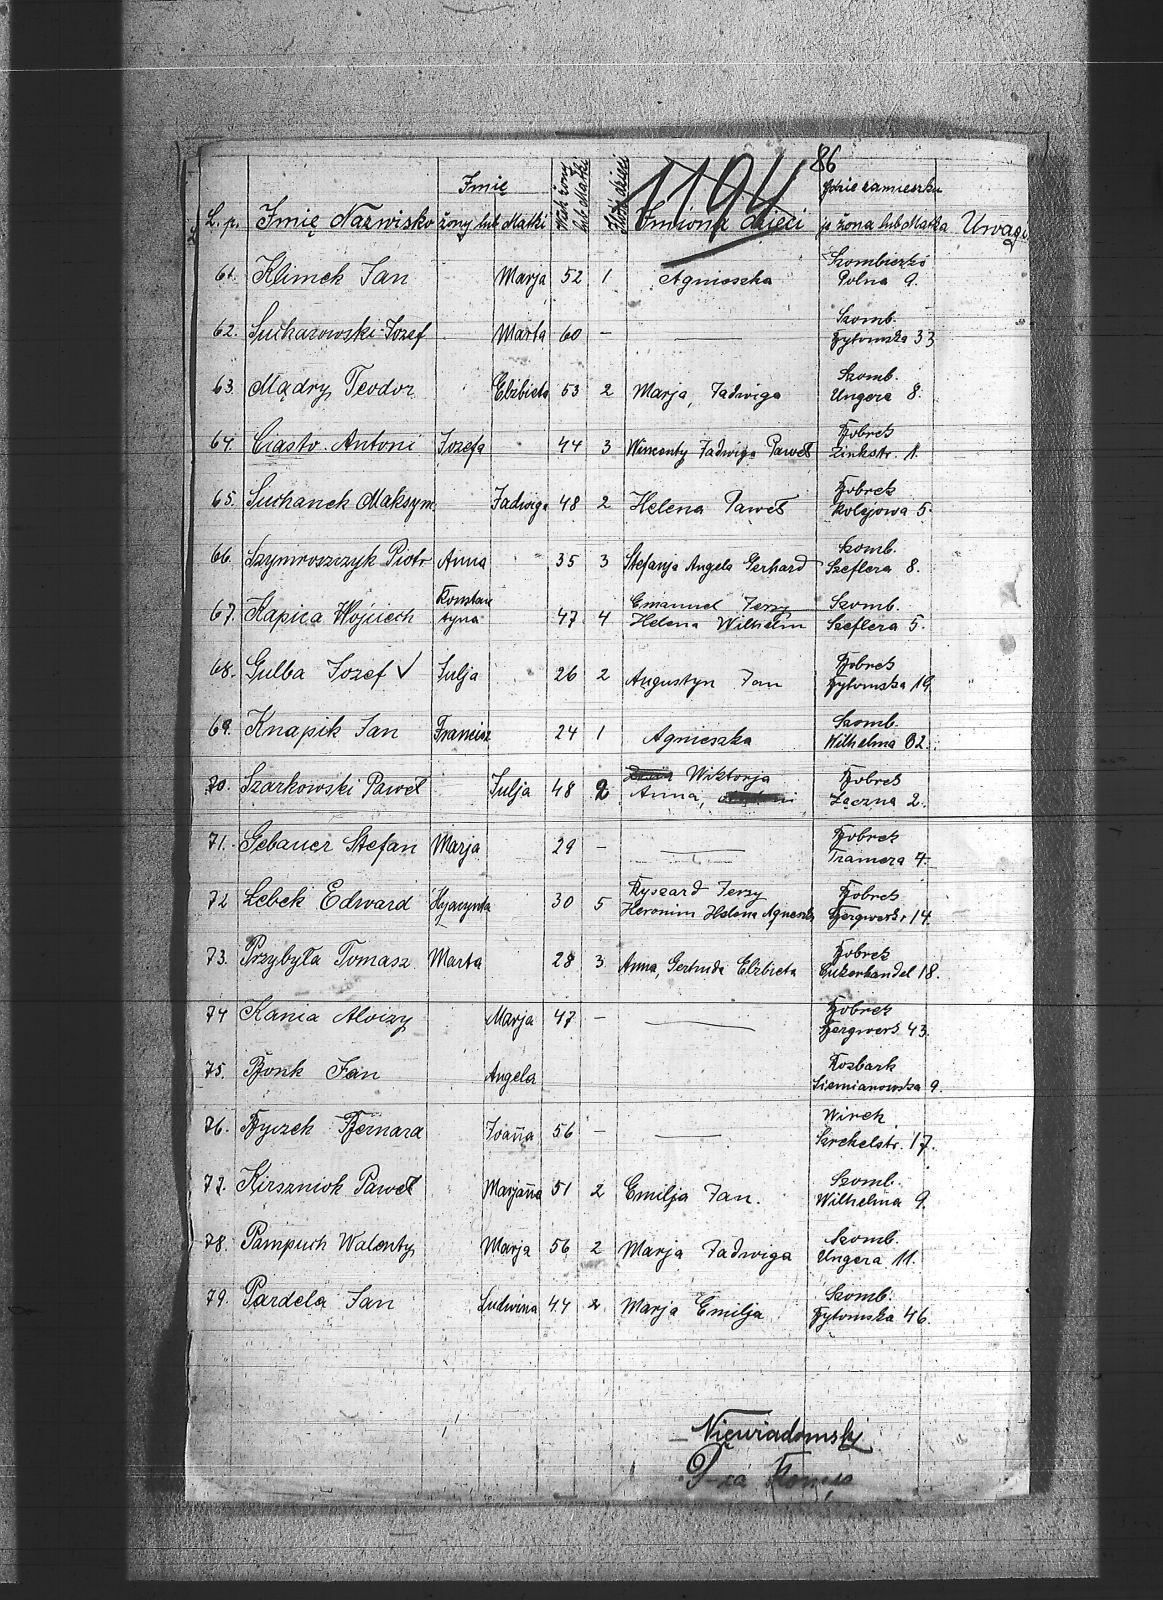 86
1194
Imię
Wiek żony lub Matki
Ilość dzieci
gdzie zamieszku
L. p. Imię Nazwisko żony lub Matki Imiona dzieci je żona lub Matka Uwagi
61. Klimek Jan Marja 52 1 Agnieszka Szombierki
Polna 9.
62. Sucharowski Jozef Marta 60 — — Szomb.
Bytomska 33
63. Mądry Teodor Elżbieta 53 2 Marja, Jadwiga Szomb.
Ungera 8.
64. Ciasto Antoni Jozefa 44 3 Wincenty Jadwiga Paweł Bobrek
Zinkstr. 1.
65. Suchanek Maksym. Jadwiga 48 2 Helena Paweł Bobrek
Kolejowa 5.
66. Szymroszczyk Piotr Anna 35 3 Stefanja Angela Gerhard Szomb.
Szeflera 8.
67. Kapica Wojciech Konstan
tyna 47 4 Emanuel Jerzy
Helena Wilhelm Szomb.
Szeflera 5.
68. Gulba Jozef ✓ Julja 26 2 Augustyn Jan Bobrek
Bytomska 19.
69. Knapik Jan Francisz 24 1 Agnieszka Szomb.
Wilhelma 32.
70. Szarkowski Paweł Julja 48 2 Wiktorja
Anna, Bobrek
Łączna 2.
71. Gebauer Stefan Marja 29 — — Bobrek
Framera 4.
72 Lebek Edward Hyacynta 30 5 Ryszard Jerzy
Heronim Helena Agnieszka Bobrek
Bergwerk. 14.
73. Przybyła Tomasz Marta 28 3 Anna, Gertruda Elżbieta Bobrek
Cukerhandel 18.
74 Kania Aloizy Marja 47 — — Bobrek
Bergwerk 43.
75. Bonk Jan Angela Rozbark
Siemianowska 9.
76. Byczek Bernard Joanna 56 — — Wirek
17.
77. Kirszniok Paweł Marjanna 51 2 Emilja Jan. Szomb.
Wilhelma 9.
78. Pampuch Walenty, Marja 56 2 Marja Jadwiga Szomb.
Ungera 11.
79. Pardela Jan Ludwina 44 2 Marja Emilja Szomb.
Bytomska 46.
Niewiadomski